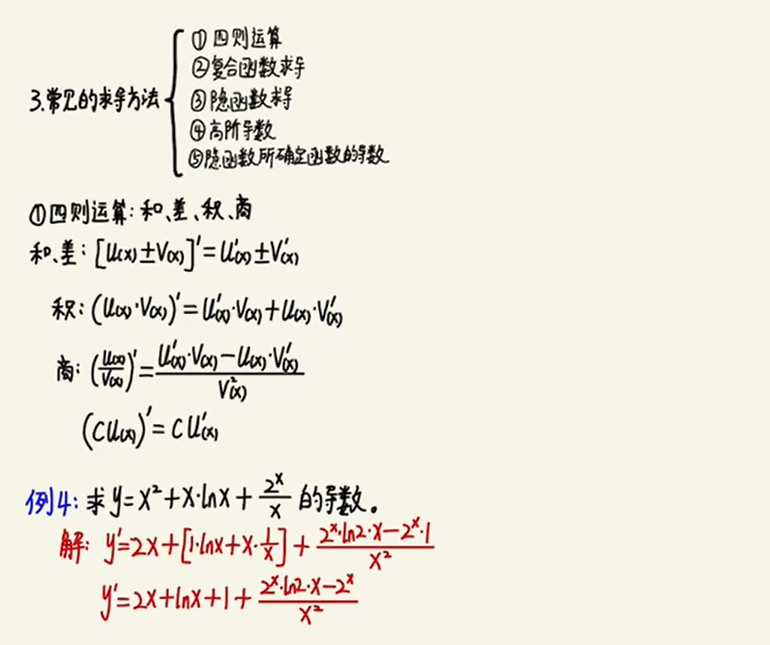 3.常见的求导方法
①四则运算
②复合函数求导
③隐函数求导
④高阶导数
⑤隐函数所确定函数的导数
①四则运算:和、差、积、商
和、差:[U(x)±V(x)]′=U′(x)±V′(x)
积:(U(x)·V(x))′=U′(x)·V(x)+U(x)·V′(x)
商:(U(x)/V(x))′=(U′(x)·V(x)-U(x)·V′(x))/V²(x)
(CU(x))′=CU′(x)
例4:求y=x²+x·lnx+2ˣ/x的导数。
解:y′=2x+[1·lnx+x·1/x]+(2ˣ·ln2·x-2ˣ·1)/x²
y′=2x+lnx+1+(2ˣ·ln2·x-2ˣ)/x²